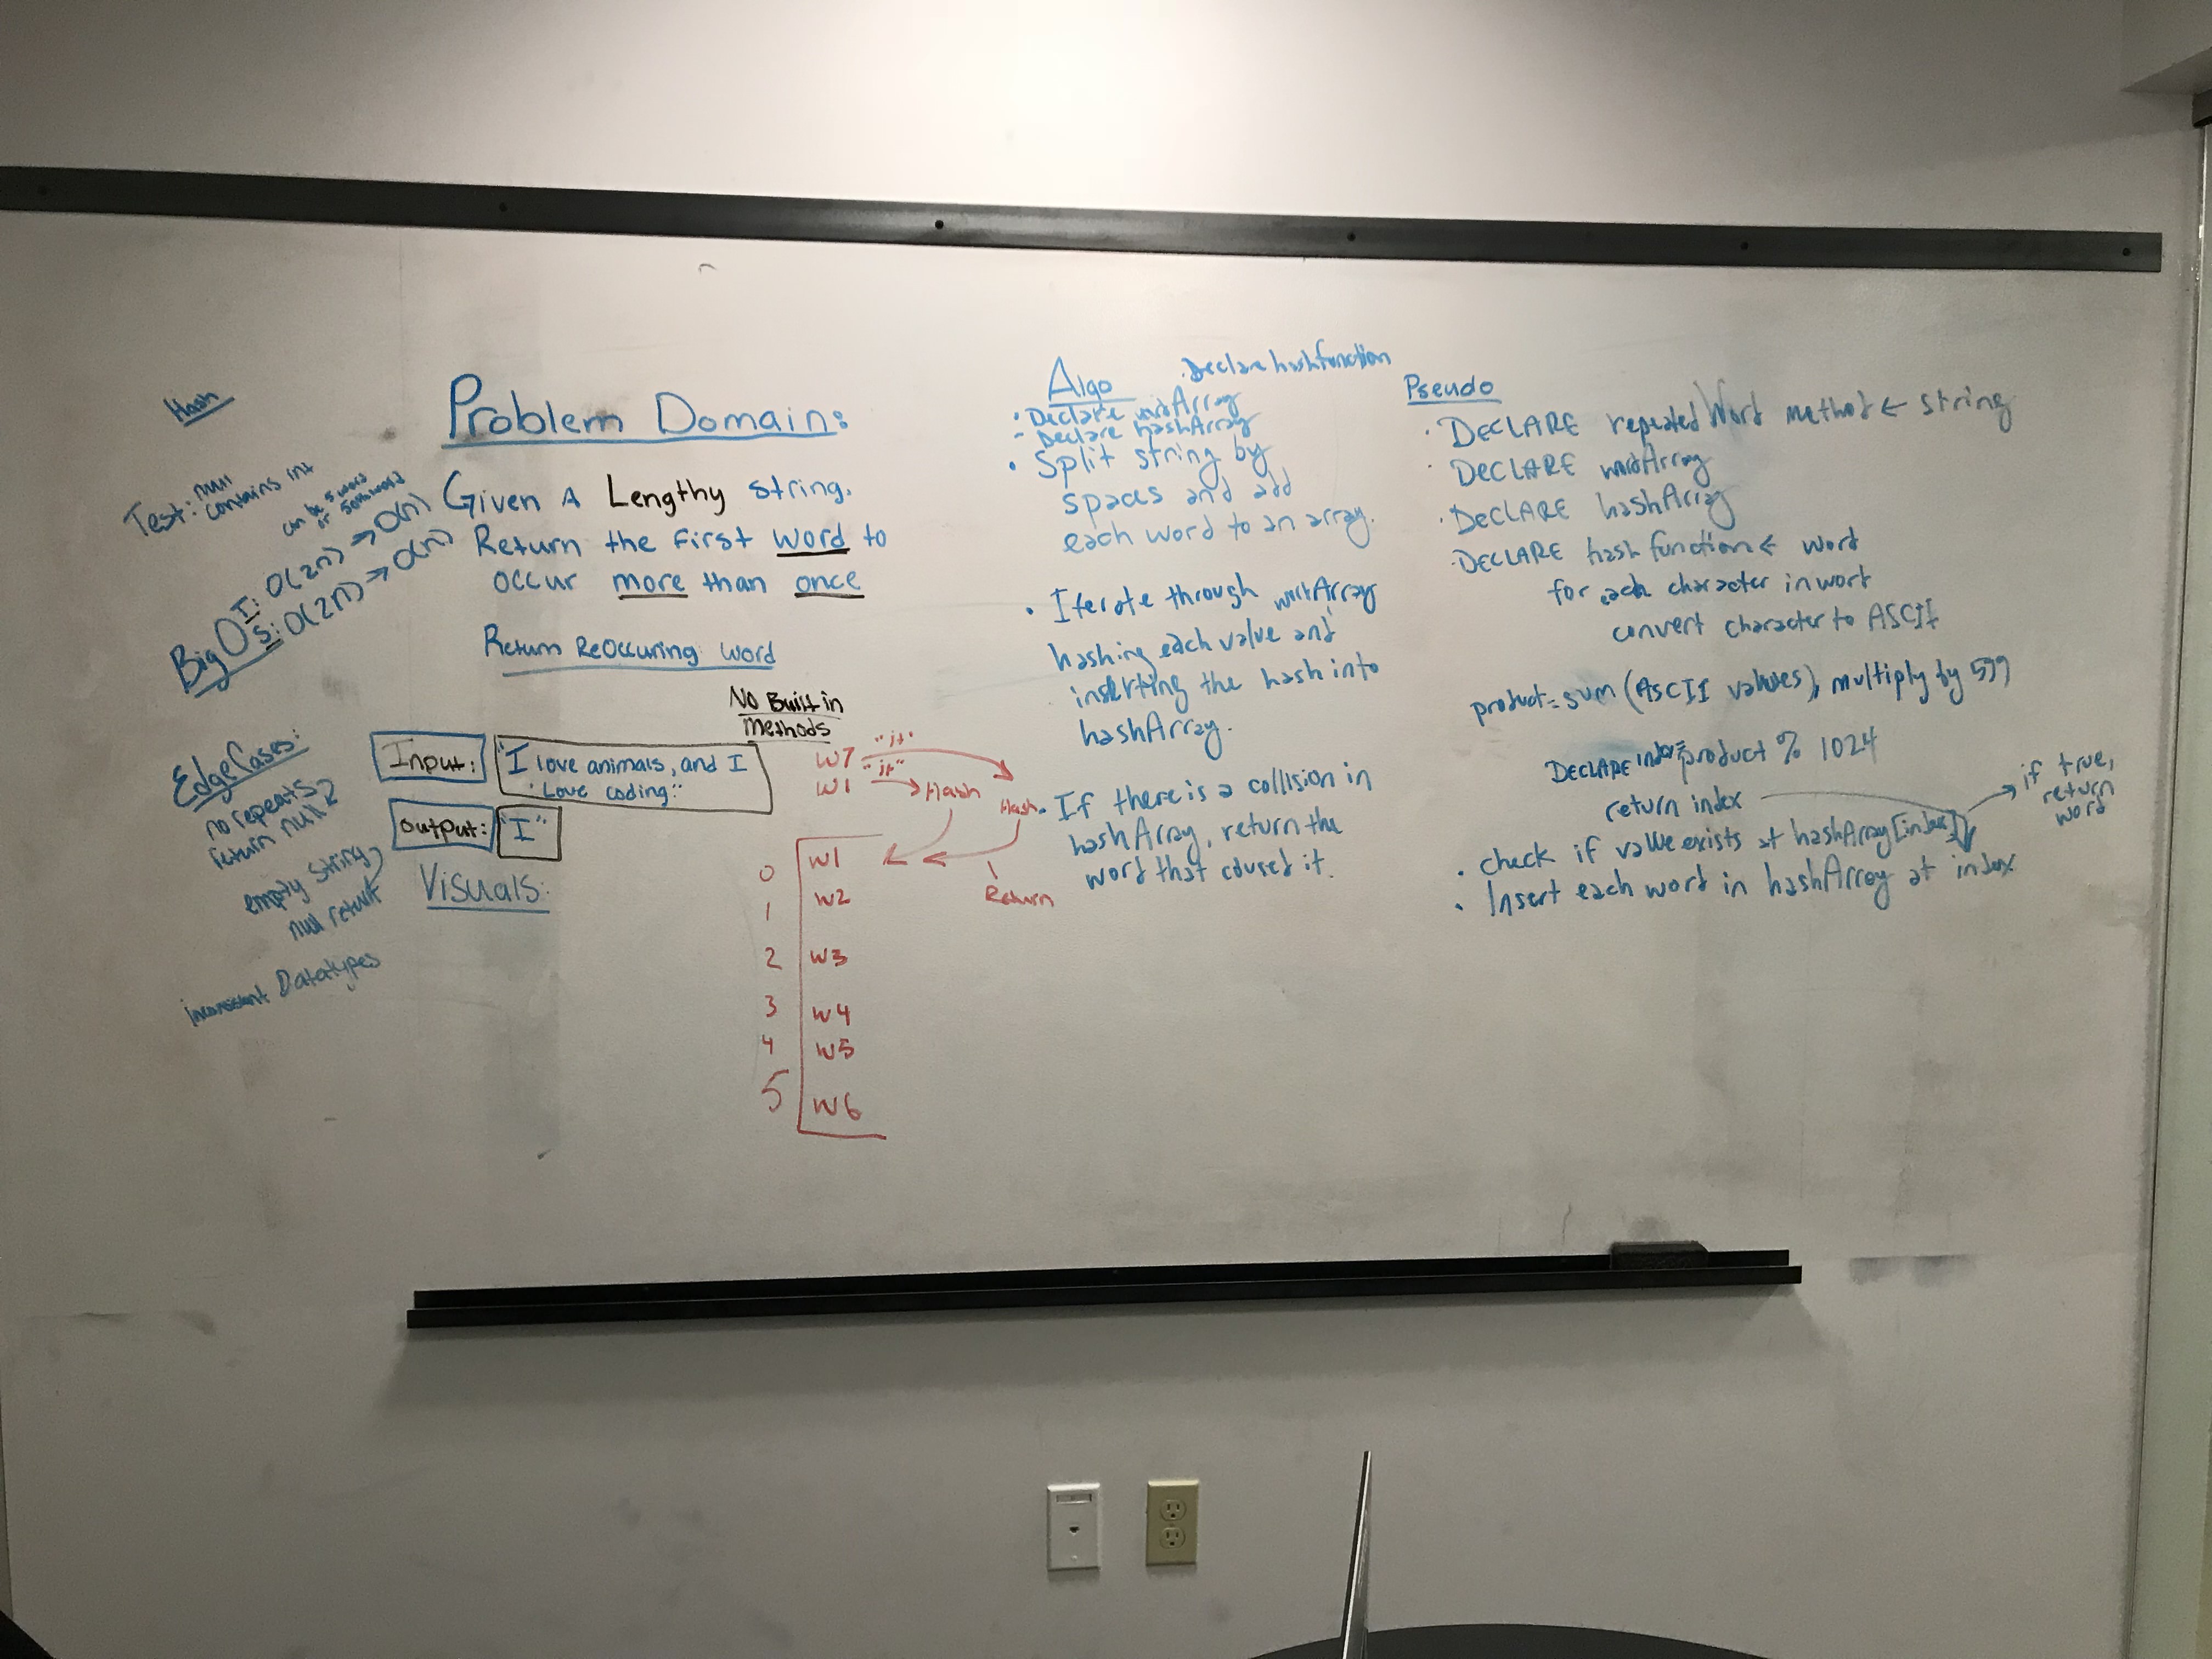 Hash
Test: null
contains int
can be 5 word
or 500 word
Big O T: O(2n) → O(n)
S: O(2n) → O(n)
Edge Cases:
no repeats
return null?
empty string,
null return
Datatypes
Problem Domain:
Given A Lengthy string.
Return the first word to
occur more than once
Return ReOccuring Word
No Built in
Methods
Input: "I love animals, and I
Love coding."
Output: "I"
Visuals:
W7 "it"
W1 "it" Hash
Hash
Return
0 W1
1 W2
2 W3
3 W4
4 W5
5 W6
Algo
· Declare hashfunction
· Declare wordArray
- Declare hashArray
· Split string by
spaces and add
each word to an array.
· Iterate through wordArray
hashing each value and
inserting the hash into
hashArray.
· If there is a collision in
hashArray, return the
word that caused it.
Pseudo
· DECLARE repeatedWord method ← string
· DECLARE wordArray
· DECLARE hashArray
· DECLARE hashfunction ← word
for each character in word
convert character to ASCII
product = sum (ASCII values), multiply by 599
DECLARE index = product % 1024
return index
· check if value exists at hashArray[index]
→ if true,
return
word
· Insert each word in hashArray at index